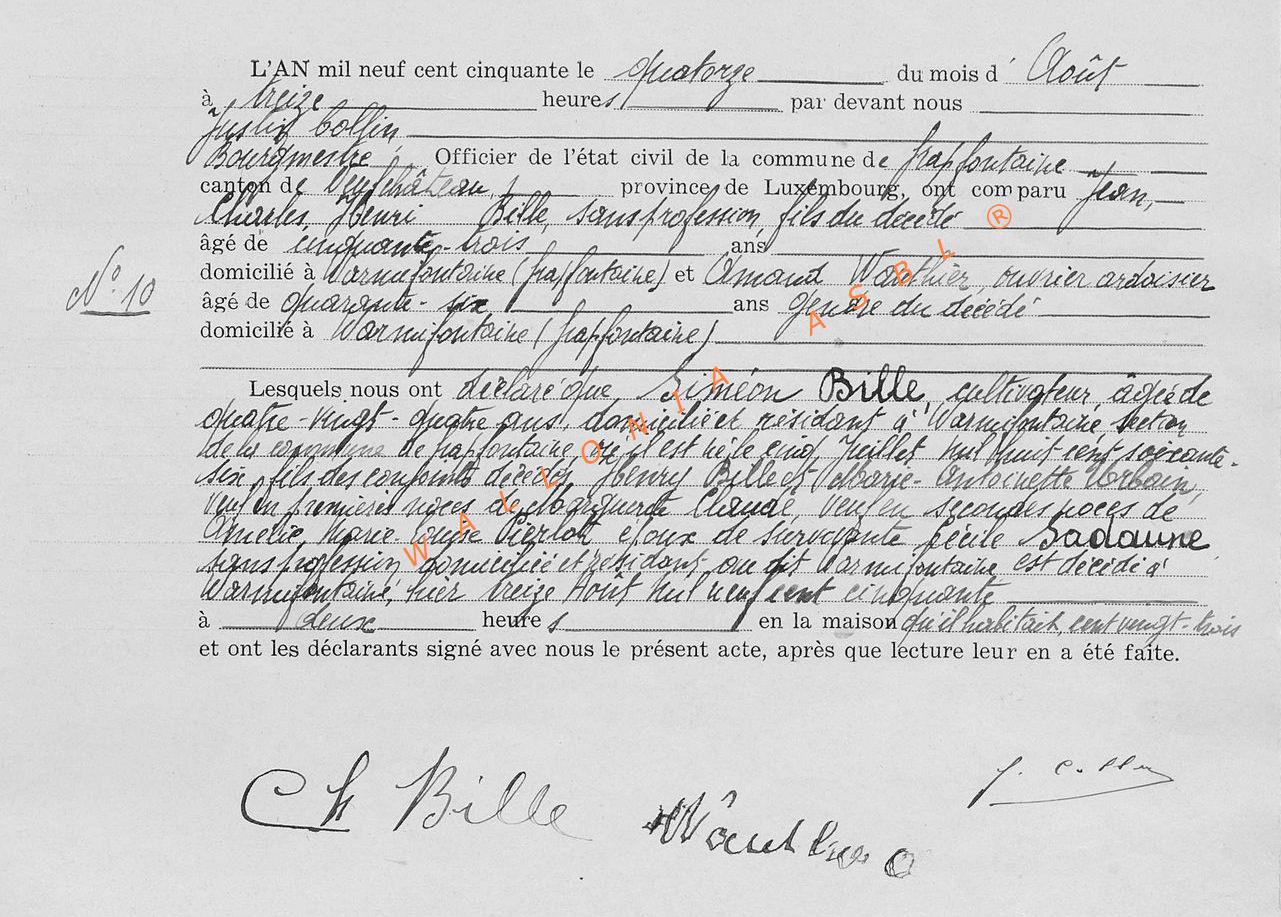 L'AN mil neuf cent cinquante le quatorze du mois d' Août
à treize heures par devant nous
Justin Collin,
Bourgmestre, Officier de l'état civil de la commune de Grapfontaine
canton de Neufchâteau, province de Luxembourg, ont comparu Jean,
Charles, Henri Bille, sans profession, fils du décédé
âgé de cinquante-trois ans
domicilié à Warmifontaine (Grapfontaine) et Amand Wauthier, ouvrier ardoisier
N° 10
âgé de quarante-six ans gendre du décédé
domicilié à Warmifontaine (Grapfontaine)
Lesquels nous ont déclaré que Siméon Bille, cultivateur, âgé de
quatre-vingt-quatre ans, domicilié et résidant à Warmifontaine, section
de la commune de Grapfontaine, où il est né le cinq Juillet mil huit cent soixante-
six, fils des conjoints décédés Henry Bille et Marie-Antoinette Urbain,
veuf en premières noces de Marguerite Claude, veuf en secondes noces de
Amélie, Marie-Louise Pierlot époux de survivante Cécile Sadaune
sans profession, domiciliée et résidant au dit Warmifontaine est décédé à
Warmifontaine, hier treize Août mil neuf cent cinquante
à deux heures en la maison qu'il habitait, cent vingt-trois
et ont les déclarants signé avec nous le présent acte, après que lecture leur en a été faite.
WALLONIA ASBL ®
Ch Bille
J. Collin